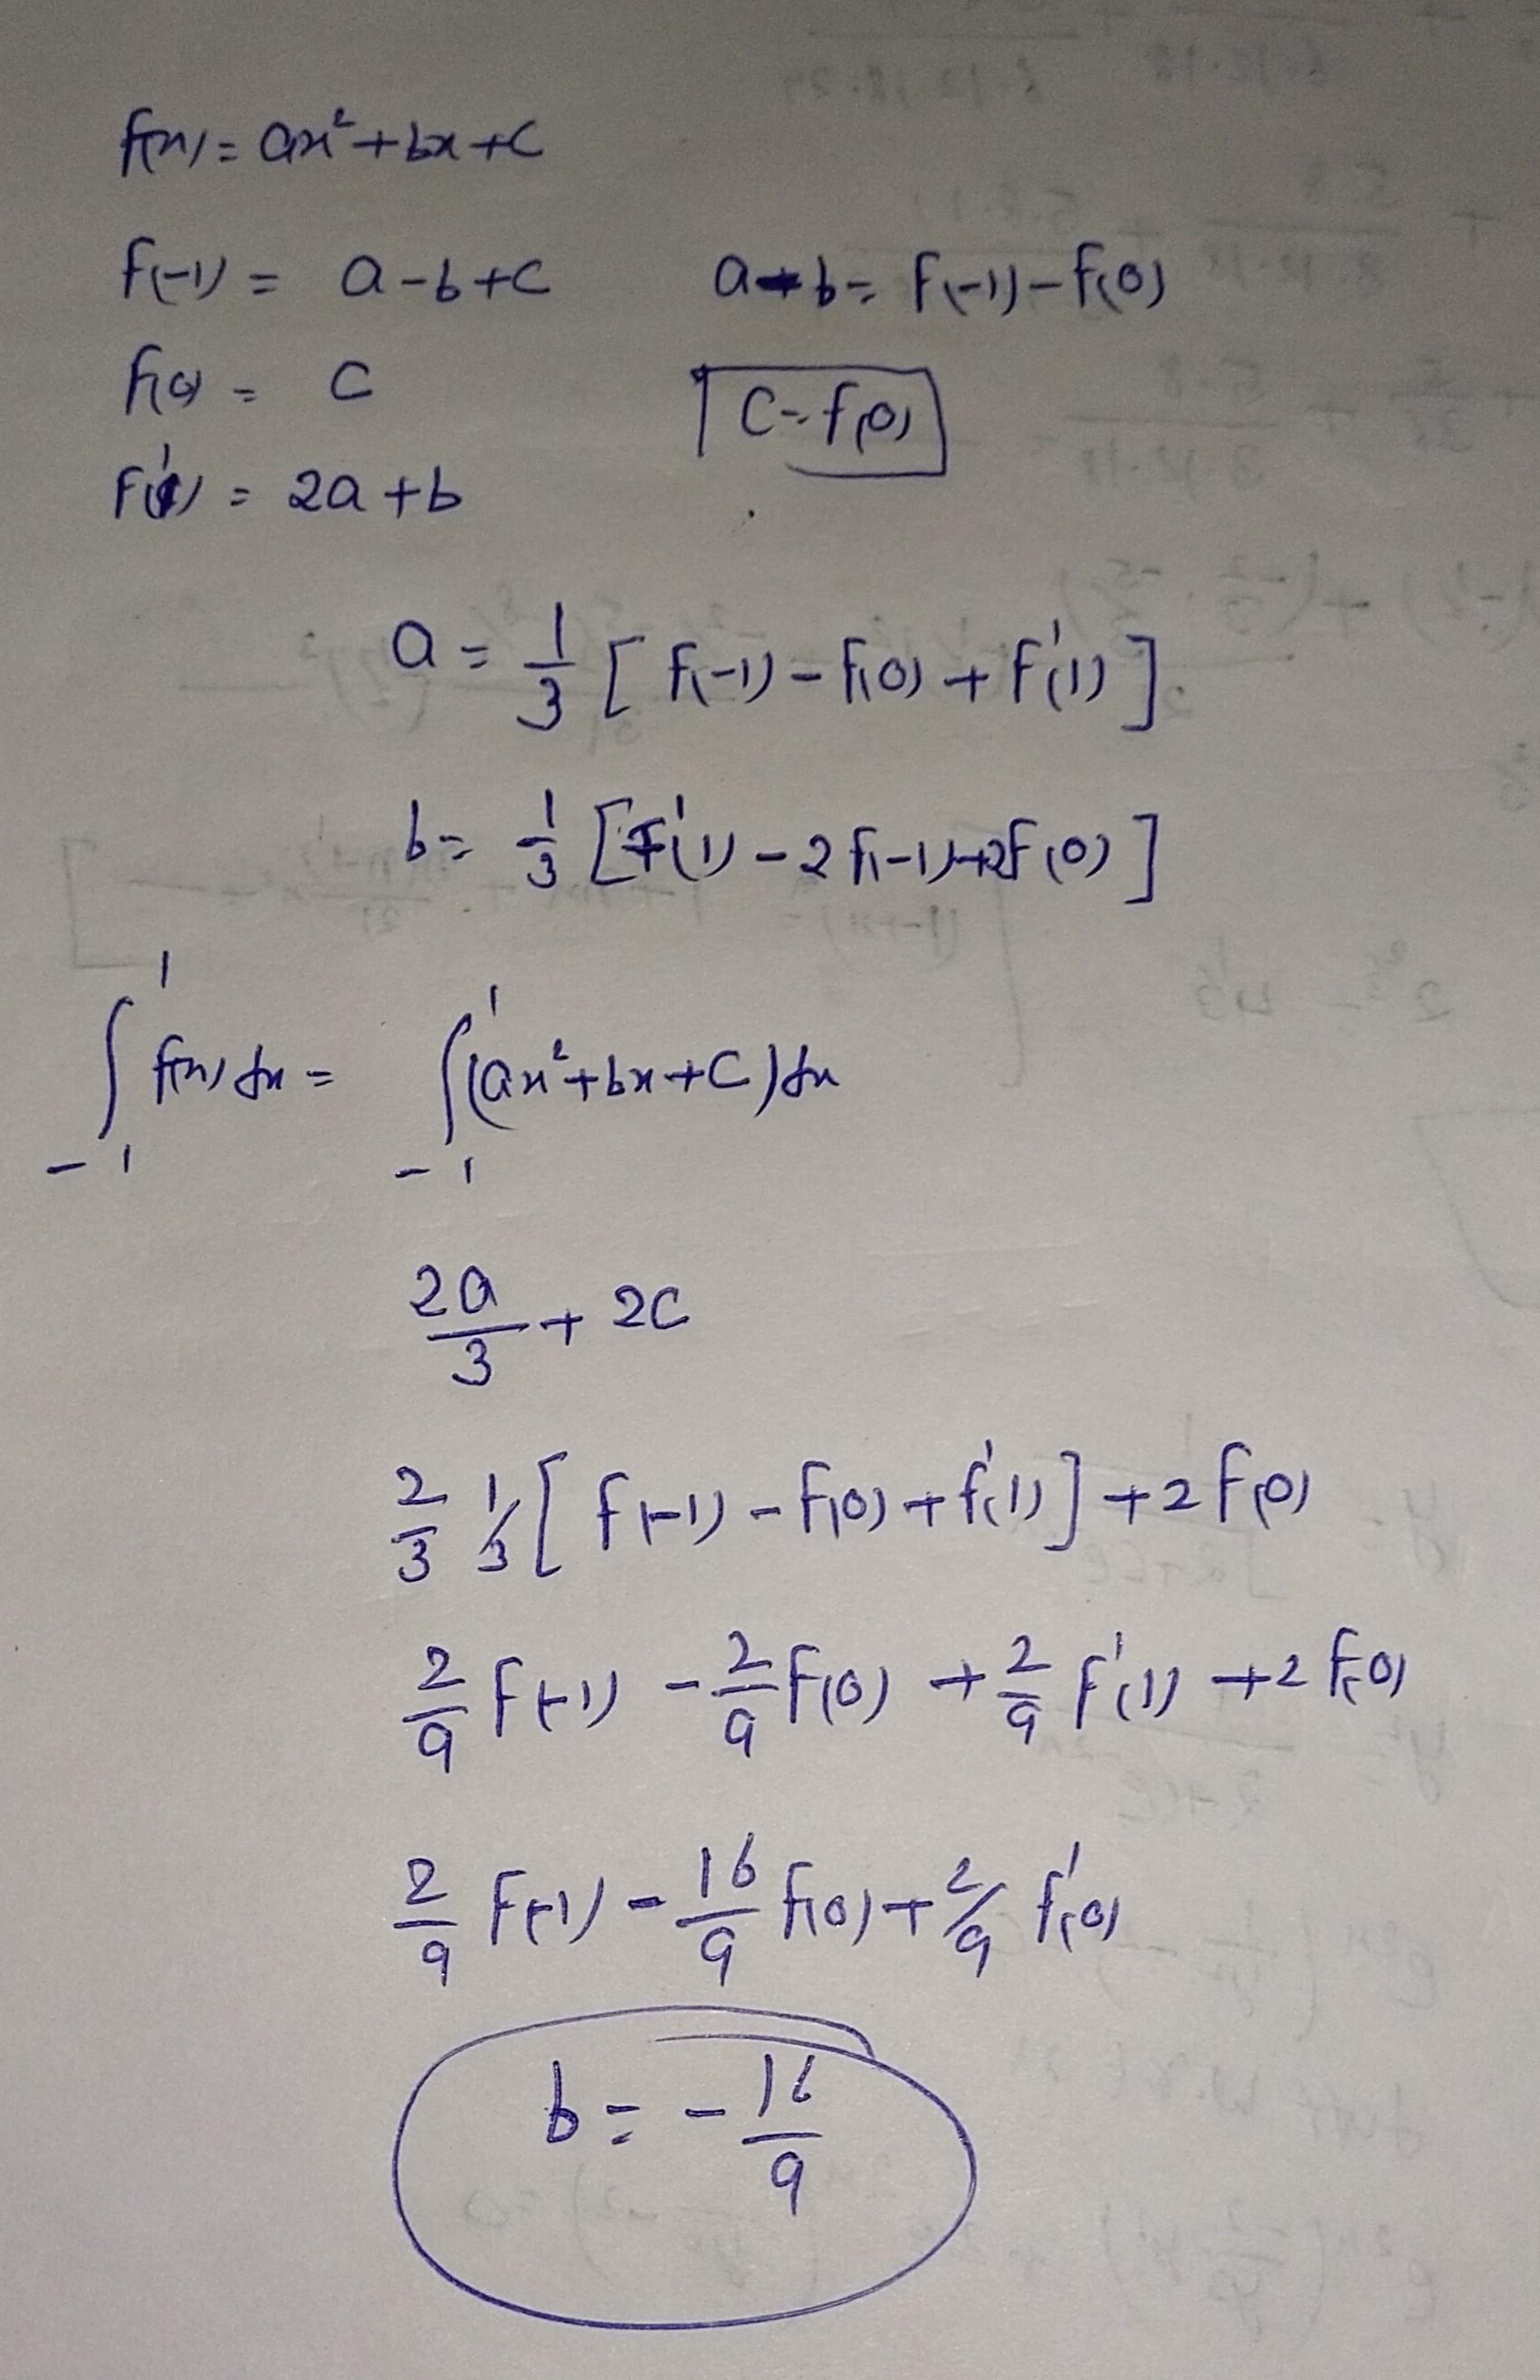 f(x) = ax² + bx + c
f(-1) = a - b + c    a - b = f(-1) - f(0)
f(0) = c    c = f(0)
f'(1) = 2a + b
a = 1/3 [ f(-1) - f(0) + f'(1) ]
b = 1/3 [ f'(1) - 2f(-1) + 2f(0) ]
∫_{-1}^{1} f(x) dx = ∫_{-1}^{1} (ax² + bx + c) dx
2a/3 + 2c
2/3 1/3 [ f(-1) - f(0) + f'(1) ] + 2f(0)
2/9 f(-1) - 2/9 f(0) + 2/9 f'(1) + 2f(0)
2/9 f(-1) - 16/9 f(0) + 2/9 f'(0)
b = - 16/9